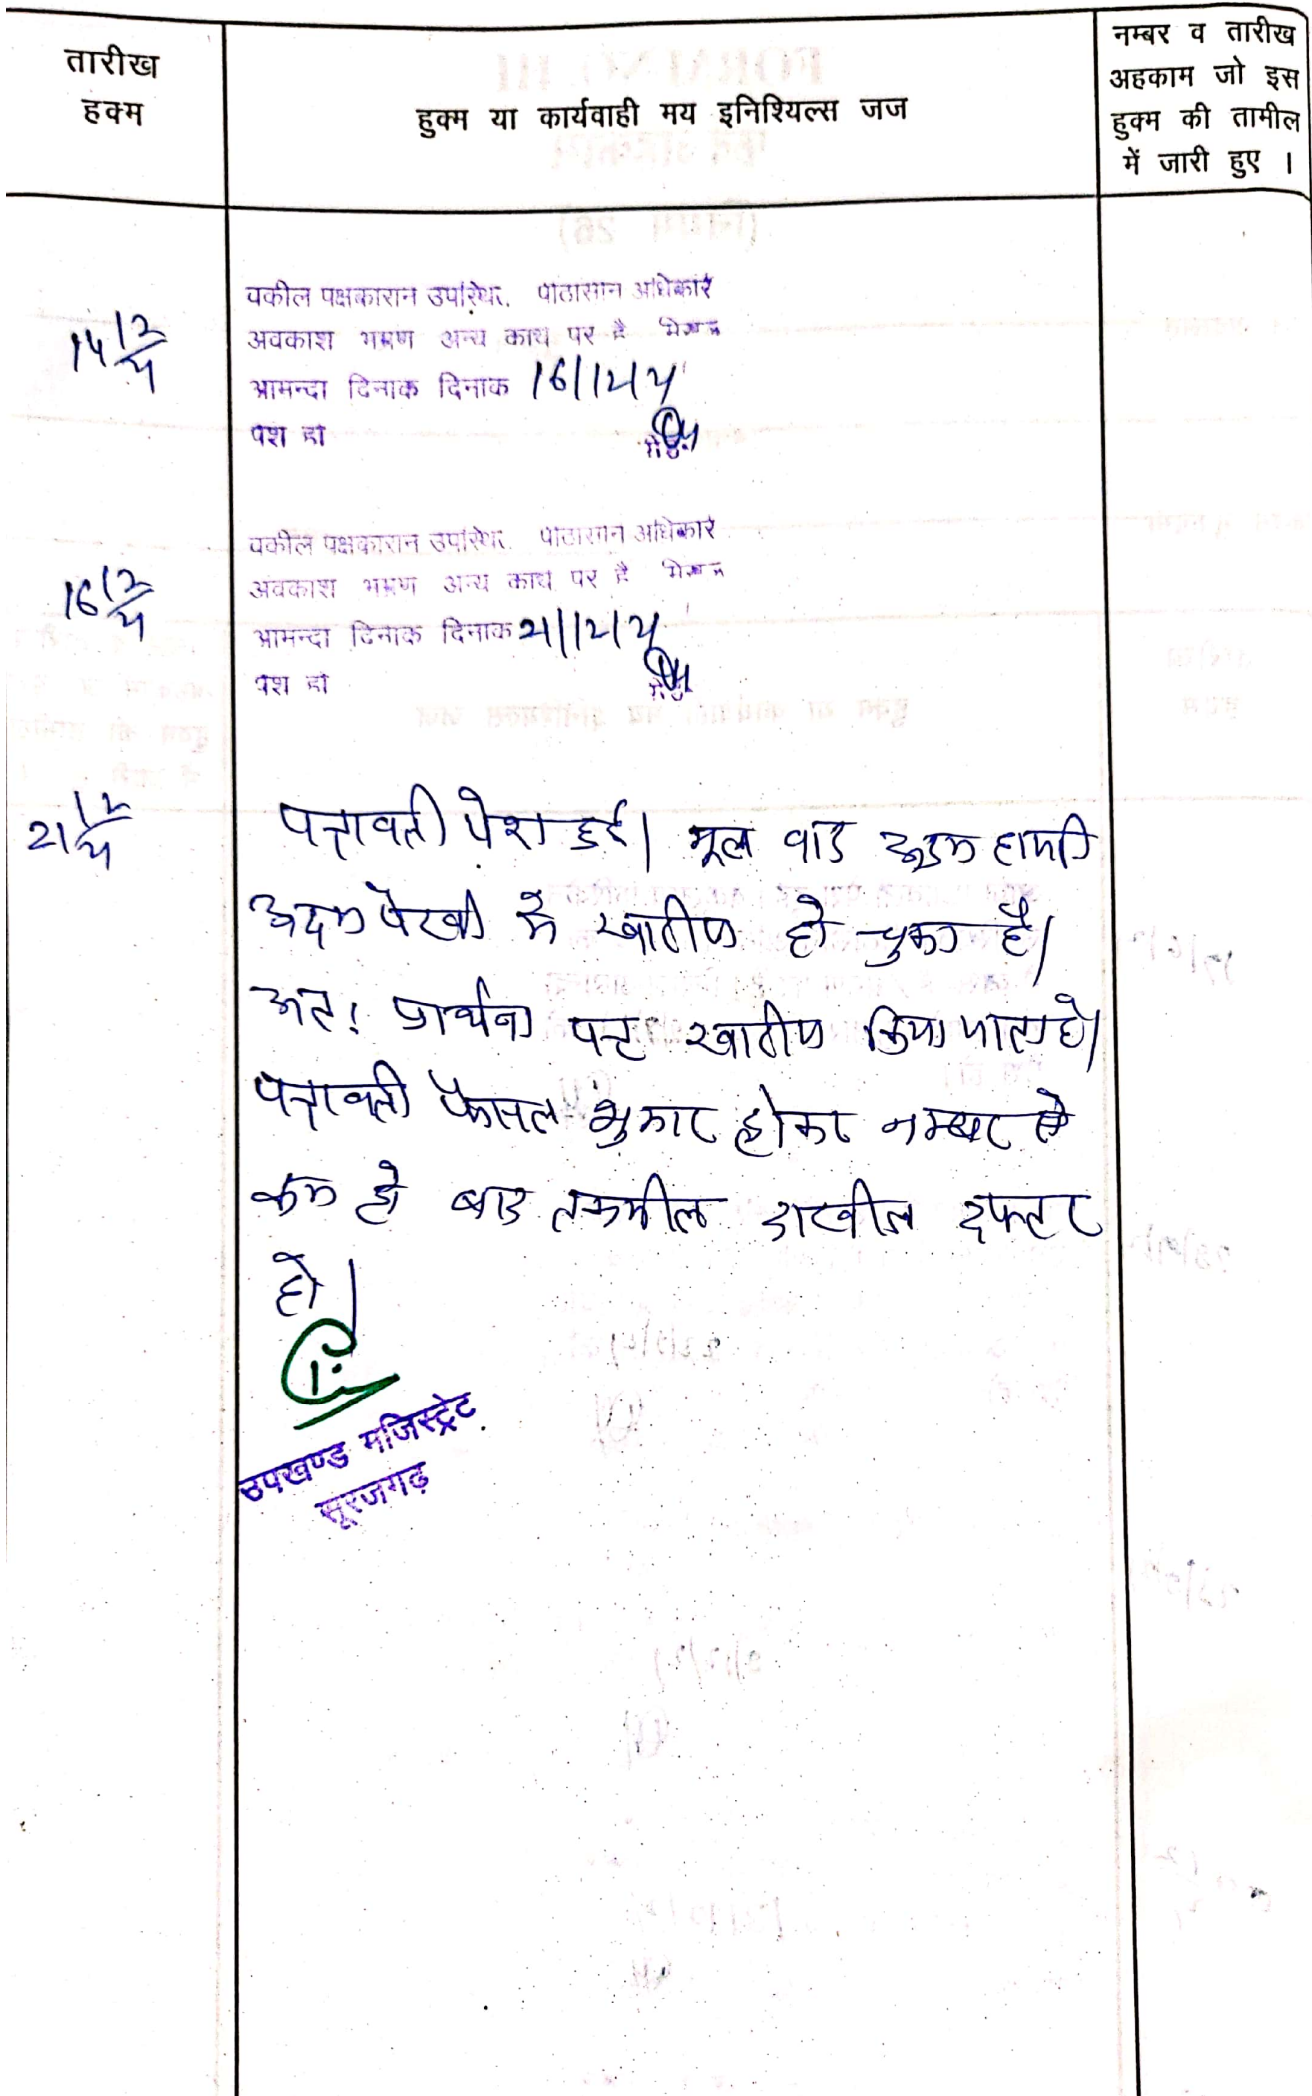 तारीख
हक्म
हुक्म या कार्यवाही मय इनिशियल्स जज
नम्बर व तारीख
अहकाम जो इस
हुक्म की तामील
में जारी हुए ।
14 12/24
वकील पक्षकारान उपस्थित. पीठासीन अधिकारी
अवकाश भ्रमण अन्य कार्य पर है
आयन्दा दिनांक दिनांक 16/12/24
पेश हो
16 12/24
वकील पक्षकारान उपस्थित. पीठासीन अधिकारी
अवकाश भ्रमण अन्य कार्य पर है
आयन्दा दिनांक दिनांक 21/12/24
पेश हो
21 12/24
पत्रावली पेश हुई। मूल वाद अदम हाजरी
अदम पैरवी में खारीज हो चुका है।
अतः प्रार्थना पत्र खारीज किया जाता है।
पत्रावली फैसल शुमार होकर नम्बर से
कम हो बाद तकमील दाखील दफ्तर
हो।
उपखण्ड मजिस्ट्रेट
सूरजगढ़